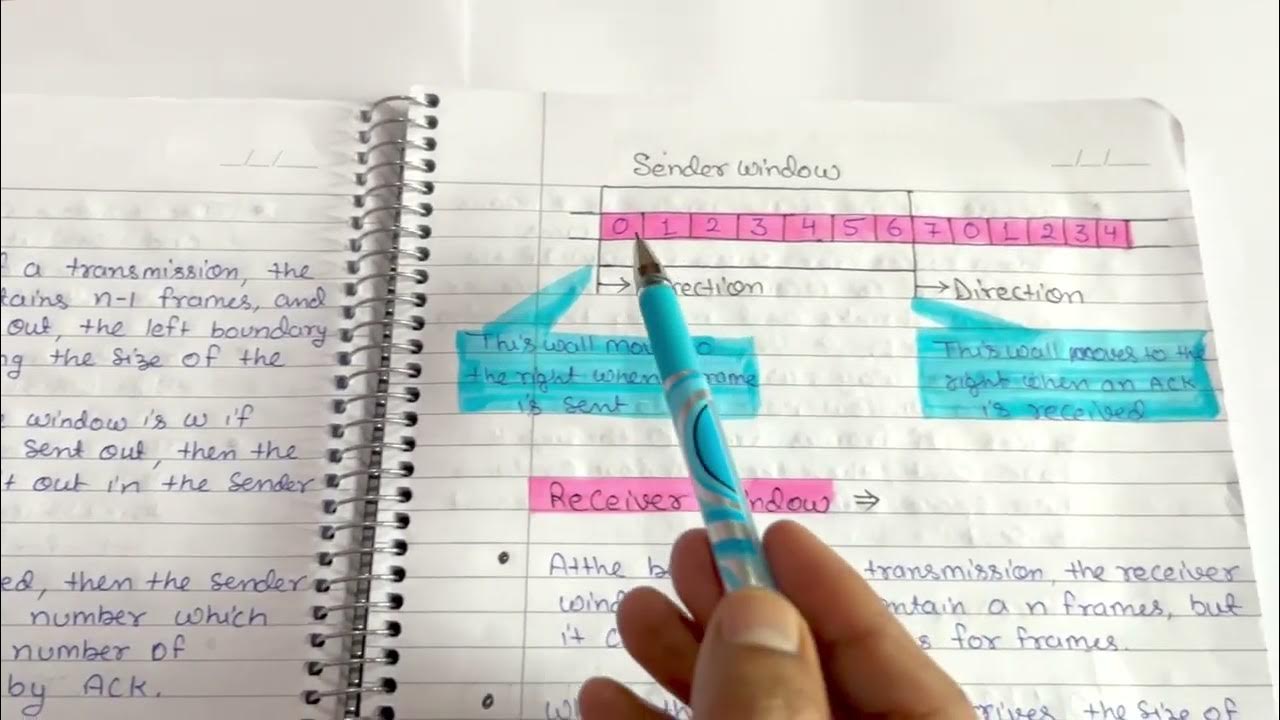 a transmission, the
n-1 frames, and
out, the left boundary
the size of the
window is w if
sent out, then the
out in the sender
then the sender
number which
number of
by ACK.
__/__/__
__/__/__
Sender window
0 1 2 3 4 5 6 7 0 1 2 3 4
Direction
This wall
the right when
is sent
This wall moves to the
right when an ACK
is received
Receiver ⇒
• At the transmission, the receiver
a n frames, but
it for frames.
•
the size of